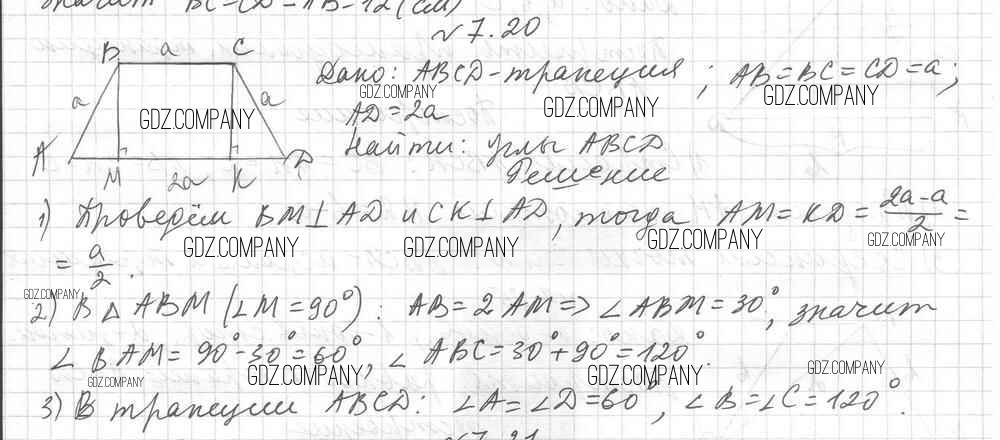 значит BC=CD=AB=12(см)
№7.20
B a C
a a
A M 2a K D
Дано: ABCD-трапеция; AB=BC=CD=a;
AD=2a
Найти: углы ABCD
Решение
1) Проведём BM⊥AD и CK⊥AD, тогда AM=KD=(2a-a)/2=
=a/2.
2) В △ABM (∠M=90°): AB=2AM=>∠ABM=30°, значит
∠BAM=90°-30°=60°, ∠ABC=30°+90°=120°.
3) В трапеции ABCD: ∠A=∠D=60°, ∠B=∠C=120°.
№7.21
GDZ.COMPANY
GDZ.COMPANY
GDZ.COMPANY
GDZ.COMPANY
GDZ.COMPANY
GDZ.COMPANY
GDZ.COMPANY
GDZ.COMPANY
GDZ.COMPANY
GDZ.COMPANY
GDZ.COMPANY
GDZ.COMPANY
GDZ.COMPANY